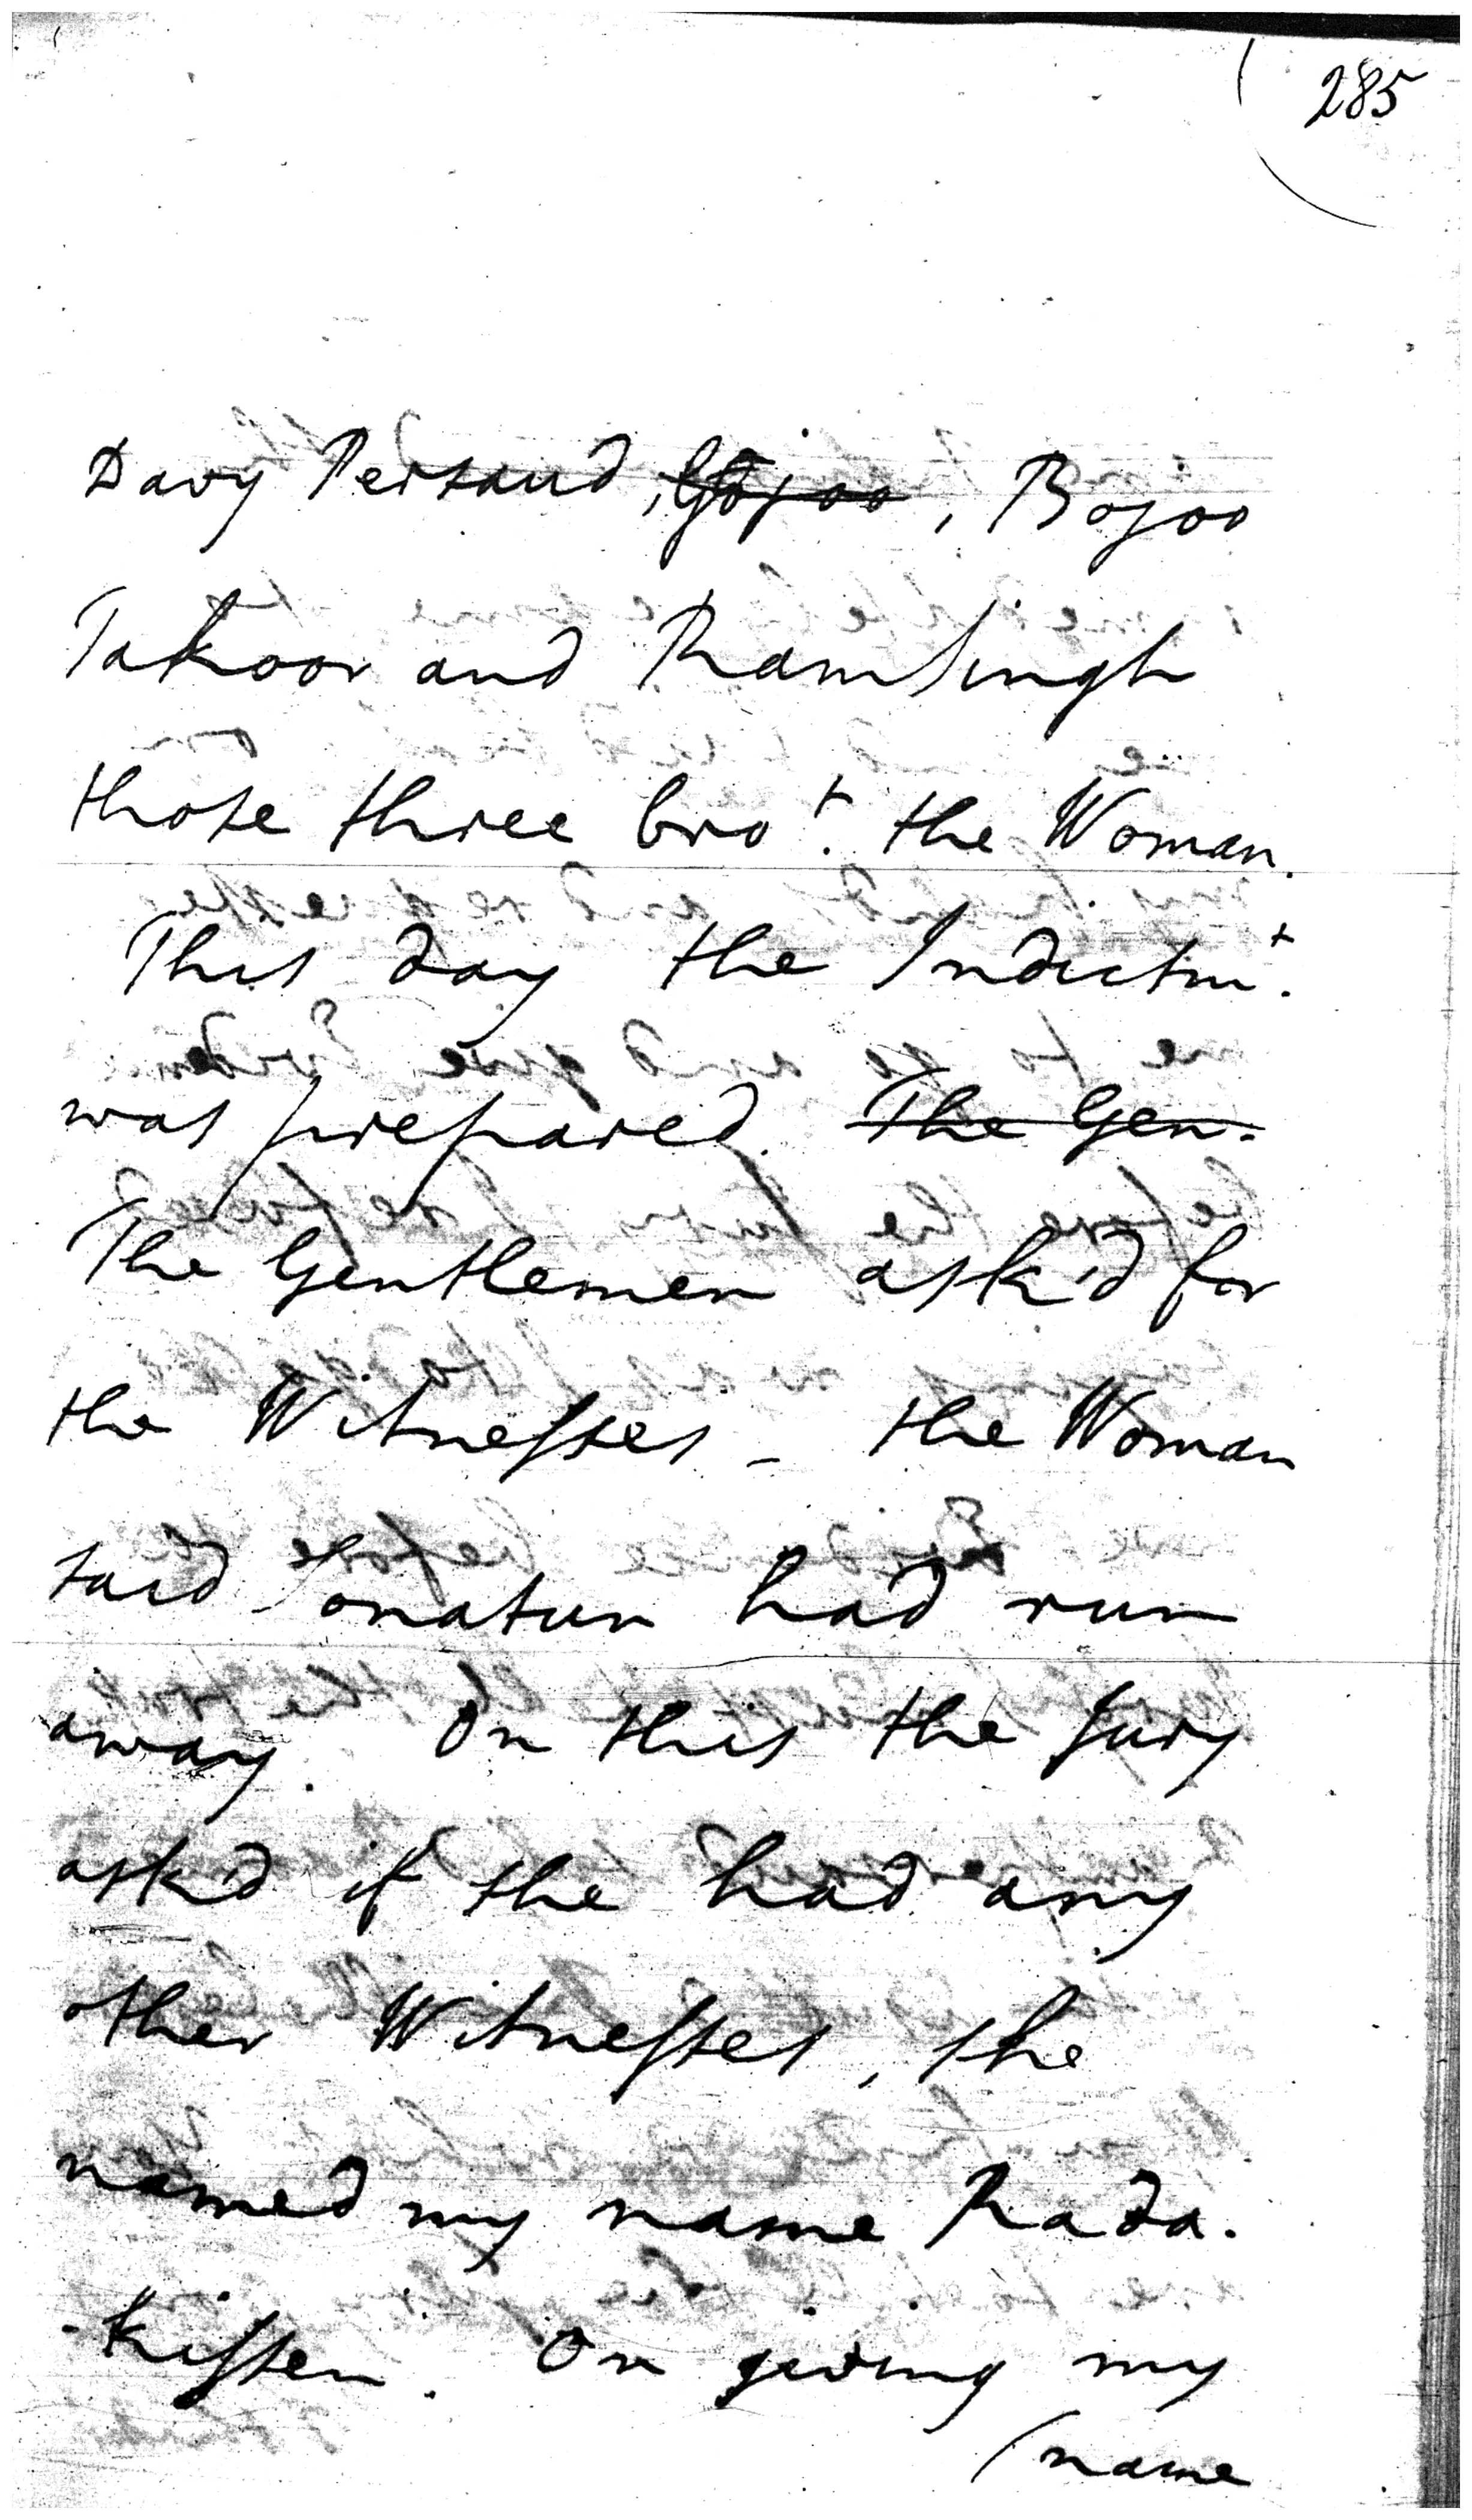 285
Davy Persaud, Gojoo, Bojoo
Takoor and Ramsingh
those three bro.t the Woman.
This day the Indictm.t
was prepared. The Gen.
The Gentlemen ask'd for
the Witnesses - the Woman
said Sonatun had run
away. On this the Jury
ask'd if she had any
other Witnesses, she
named my name Rada.
-kissen. On giving my
(name